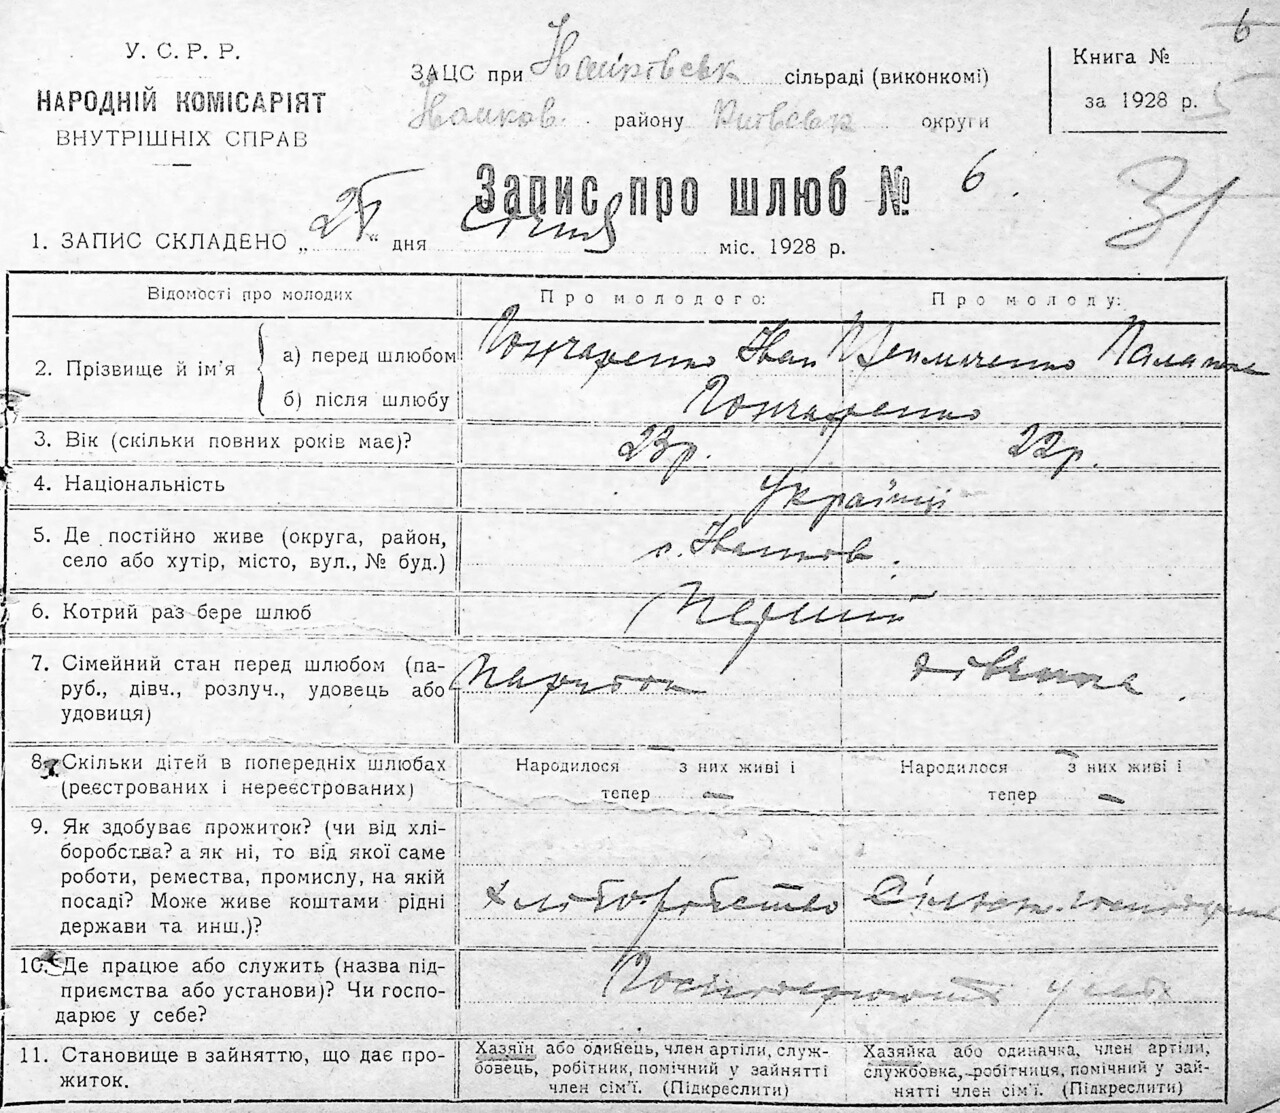 6
У. С. Р. Р.
НАРОДНІЙ КОМІСАРІЯТ
ВНУТРІШНІХ СПРАВ
ЗАЦС при сільраді (виконкомі)
району округи
Книга №
за 1928 р. 5
Запис про шлюб № 6.
31
1. ЗАПИС СКЛАДЕНО „25“ дня січня міс. 1928 р.
Відомості про молодих Про молодого: Про молоду:
2. Прізвище й ім'я
а) перед шлюбом Гончаренко Іван
б) після шлюбу Гончаренко
3. Вік (скільки повних років має)? 23р. 22р.
4. Національність Українці
5. Де постійно живе (округа, район,
село або хутір, місто, вул., № буд.) с.
6. Котрий раз бере шлюб Перший
7. Сімейний стан перед шлюбом (па-
руб., дівч., розлуч., удовець або
удовиця) парубок дівчина
8. Скільки дітей в попередніх шлюбах
(реєстрованих і нереєстрованих)
Народилося — з них живі і
тепер —
Народилося — з них живі і
тепер —
9. Як здобуває прожиток? (чи від хлі-
боробства? а як ні, то від якої саме
роботи, ремества, промислу, на якій
посаді? Може живе коштами рідні
держави та инш.)? хліборобство
10. Де працює або служить (назва під-
приємства або установи)? Чи госпо-
дарює у себе? Господарюють у себе
11. Становище в зайняттю, що дає про-
житок.
Хазяїн або одинець, член артіли, служ-
бовець, робітник, помічний у зайнятті
член сім'ї. (Підкреслити)
Хазяйка або одиначка, член артіли,
службовка, робітниця, помічний у зай-
нятті член сім'ї. (Підкреслити)